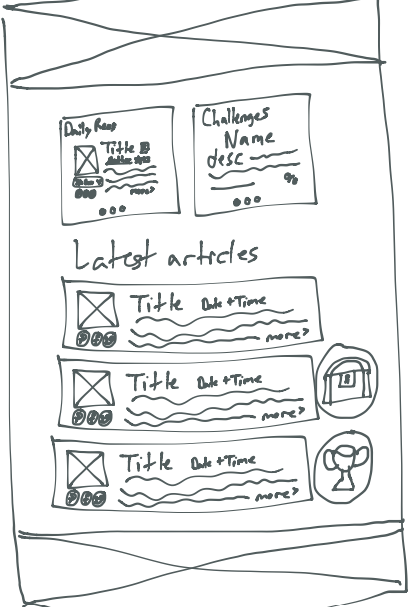 Daily
Title
more>
Challenges
Name
desc
Latest articles
Title Date + Time
more>
Title Date + Time
more>
Title Date + Time
more>